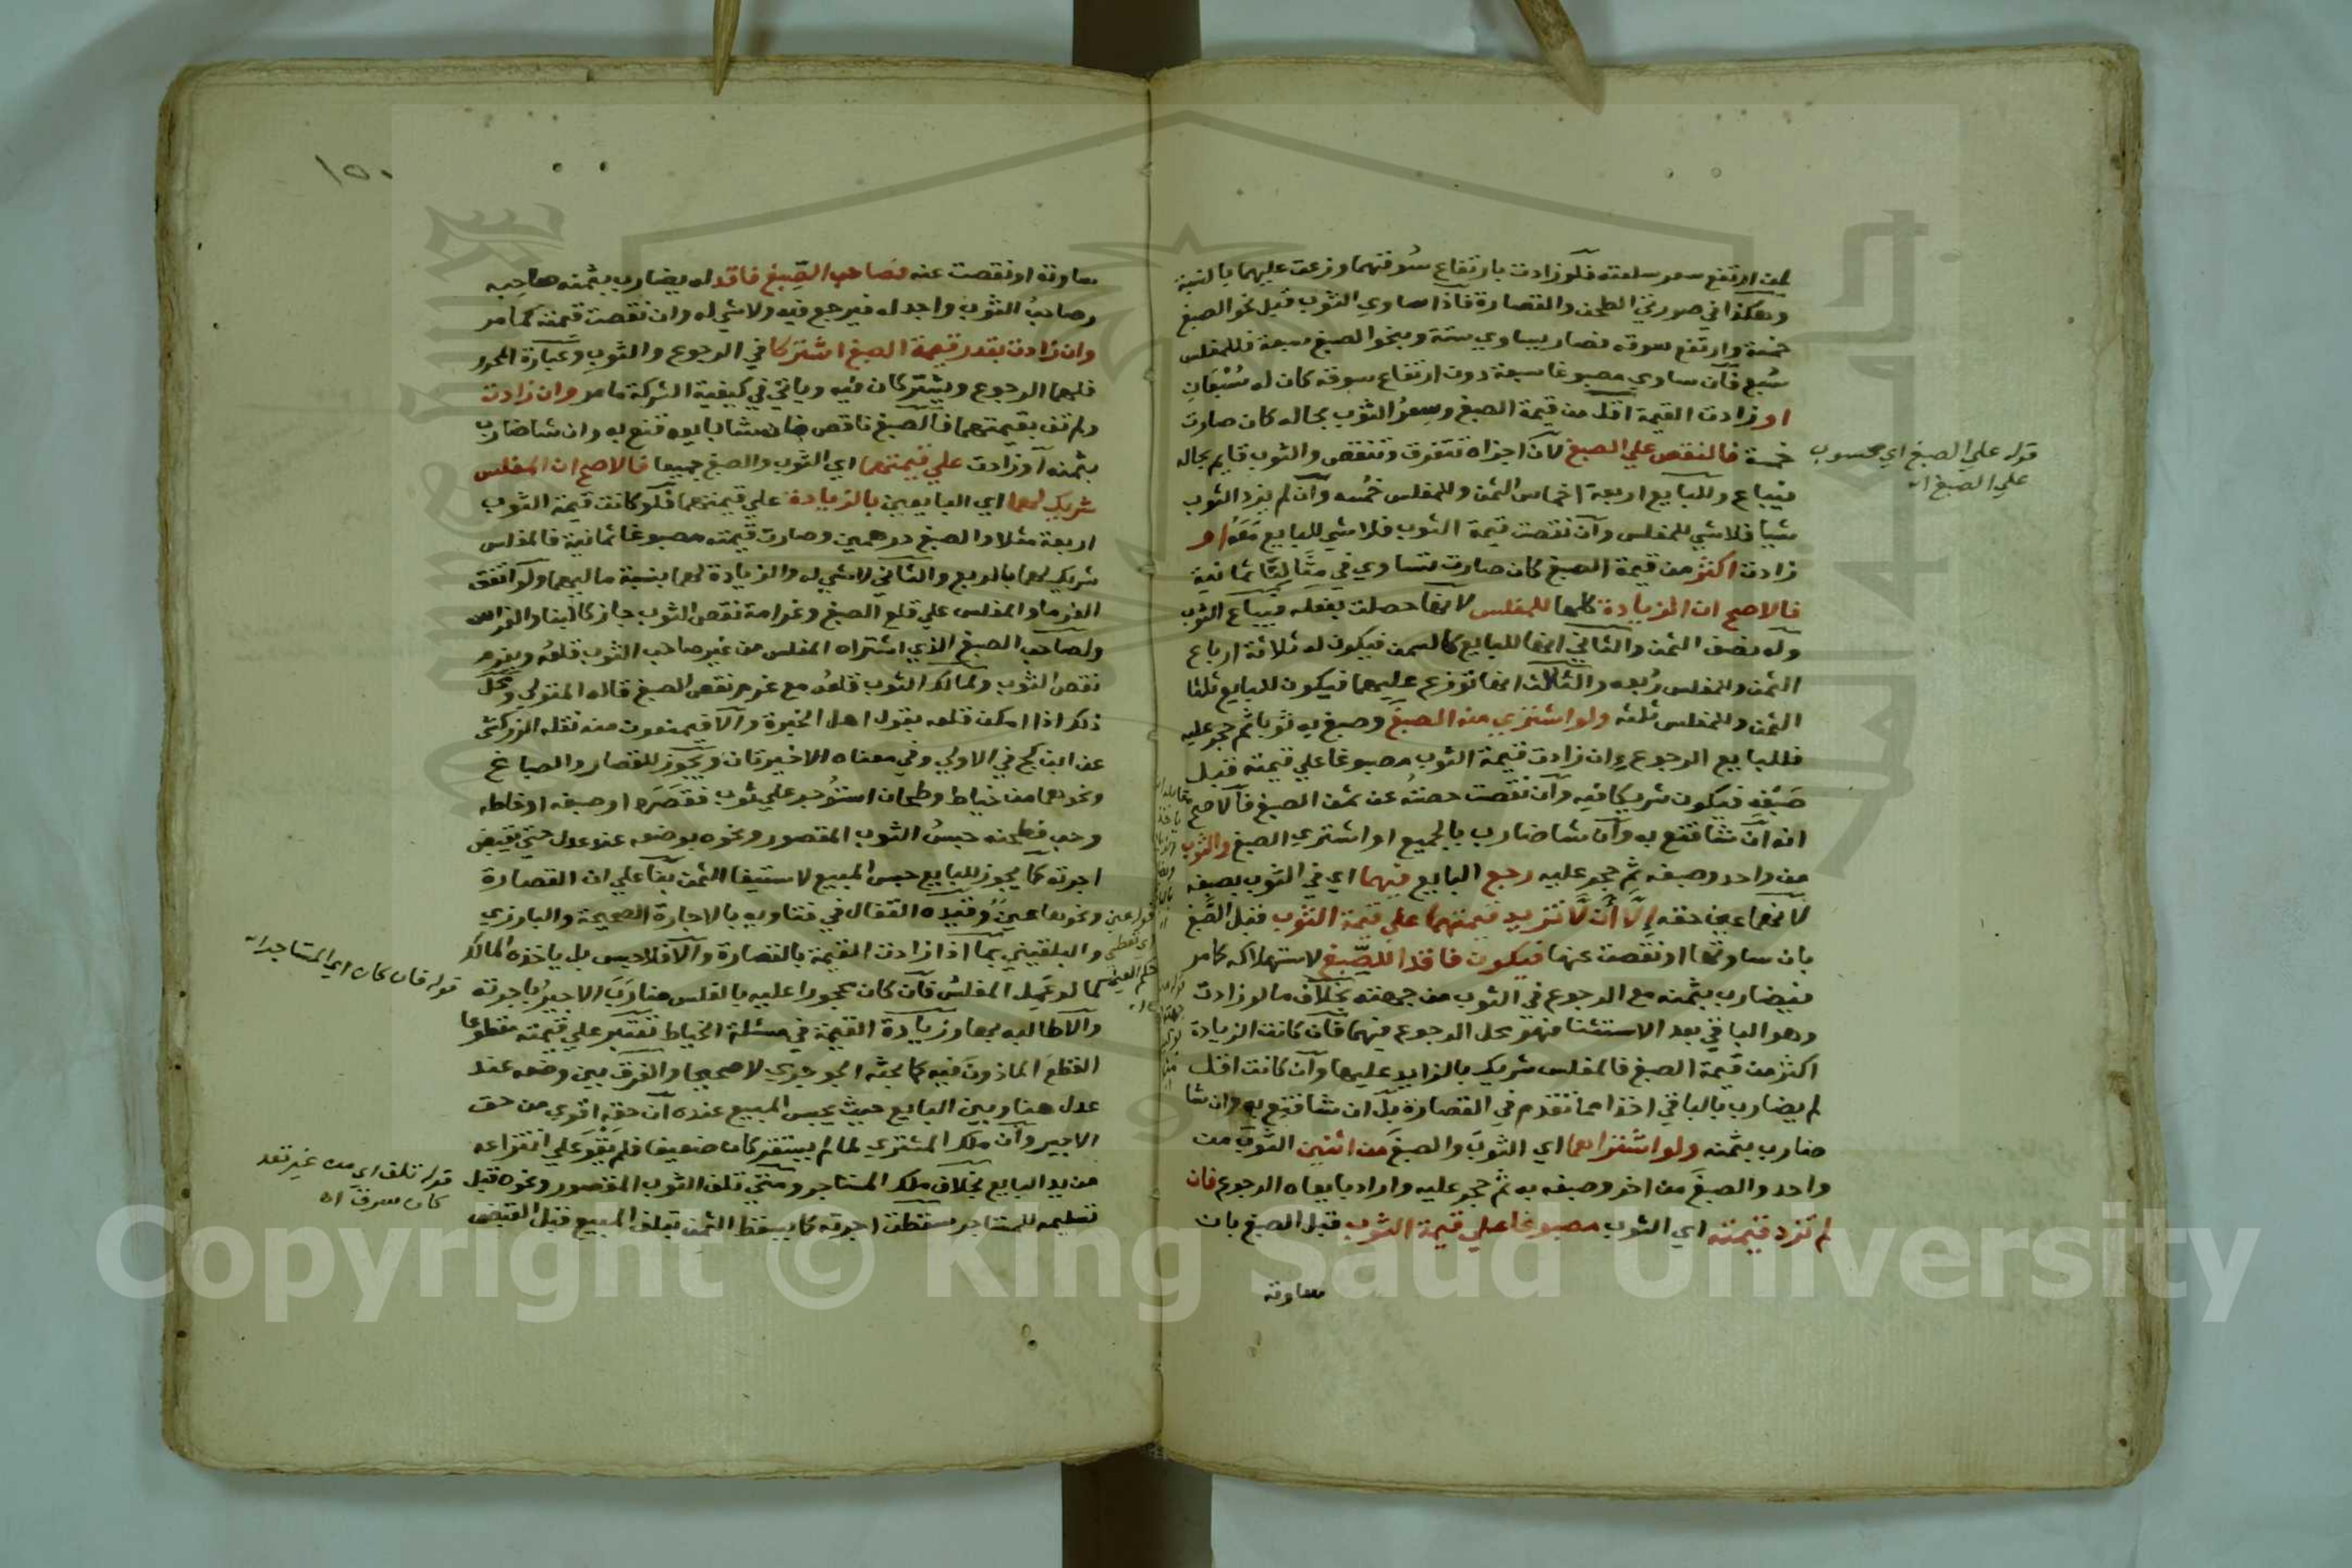 لمن ارتفع سعر سلعته فلو زادت بارتفاع سوقهما وزعت عليهما بالنسبة
وهكذا في صورتي الطحن والقصارة فاذا ساوي الثوب قبل نحو الصبغ
خمسة وارتفع سوقه فصار يساوي ستة وبنحو الصبغ سبعة فللمفلس
سُبع فان ساوي مصبوغا سبعة دون ارتفاع سوقه كان له سُبُعان
او زادت القيمة اقل من قيمة الصبغ وسعرُ الثوب بحاله كان صارت
خمسة فالنقص علي الصبغ لان اجزاه تتفرق وتنقص والثوب قايم بحاله
فيباع وللبايع اربعة اخماس الثمن وللمفلس خمُسه وان لم يزد الثوب
شيا فلا شي للمفلس وان نقصت قيمة الثوب فلا شي للبايع معه او
زادت اكثر من قيمة الصبغ كان صارت تساوي في مثالنا ثمانية
فالاصح ان الزيادة كلها للمفلس لانها حصلت بفعله فيباع الثوب
وله نصف الثمن والثاني انها للبايع كالسمن فيكون له ثلاثة ارباع
الثمن وللمفلس رُبعه والثالث انها توزع عليهما فيكون للبايع ثلثا
الثمن وللمفلس ثلثه ولو اشتري منه الصبغ وصبغ به ثوبا ثم حجر عليه
فللبايع الرجوع وان زادت قيمة الثوب مصبوغا علي قيمته قبل
صبغه فيكون شريكا فيه وان نقصت حصته عن ثمن الصبغ فالاصح
انه ان شا قنع به وان شا ضارب بالجميع او اشتري الصبغ والثوب
من واحد وصبغه ثم حجر عليه رجع البايع فيهما اي في الثوب بصبغه
لانهما عين حقه الا ان لا تزيد قيمتهما علي قيمة الثوب قبل الصبغ
بان ساوتها او نقصت عنها فيكون فاقدا للصبغ لاستهلاكه كما مر
فيضارب بثمنه مع الرجوع في الثوب من جهته بخلاف ما لو زادت
وهو الباقي بعد الاستثنا فهو محل الرجوع فيهما فان كانت الزيادة
اكثر من قيمة الصبغ فالمفلس شريك بالزايد عليها وان كانت اقل
لم يضارب بالباقي اخذا مما تقدم في القصارة بل ان شا قنع به وان شا
ضارب بثمنه ولو اشتراهما اي الثوب والصبغ من اثنين الثوب من
واحد والصبغ من اخر وصبغه به ثم حجر عليه واراد بايعاه الرجوع فان
لم تزد قيمته اي الثوب مصبوغا علي قيمة الثوب قبل الصبغ بان
ساوته
قوله علي الصبغ اي محسوب
علي الصبغ اه
١٥٠
ساوته او نقصت عنه فصاحب الصبغ فاقد له يضارب بثمنه صاحبه
وصاحبُ الثوب واجد له فيرجع فيه ولا شي له وان نقصت قيمته كما مر
وان زادت بقدر قيمة الصبغ اشتركا في الرجوع والثوب وعبارة المحرر
فلهما الرجوع ويشتركان فيه وياتي في كيفية الشركة ما مر وان زادت
ولم تف بقيمتهما فالصبغ ناقص فان شا بايعه قنع به وان شا ضارب
بثمنه او زادت علي قيمتهما اي الثوب والصبغ جميعا فالاصح ان المفلس
شريك لهما اي البايعين بالزيادة علي قيمتهما فلو كانت قيمة الثوب
اربعة مثلا والصبغ درهمين وصارت قيمته مصبوغا ثمانية فالمفلس
شريك لهما بالربع والثاني لا شي له والزيادة لهما بنسبة ماليهما ولو اتفق
الغرما والمفلس علي قلع الصبغ وغرامة نقص الثوب جاز كالبنا والغراس
ولصاحب الصبغ الذي اشتراه المفلس من غير صاحب الثوب قلعُه ويغرم
نقص الثوب ولمالك الثوب قلعُه مع غرم نقص الصبغ قاله المتولي ومحل
ذلك اذا امكن قلعه بقول اهل الخبرة والا فيمنعون منه نقله الزركشي
عن ابن كج في الاولي وفي معناه الاخيرتان ويجوز للقصار والصباغ
ونحوهما من خياط وطحان استُوجر علي ثوب فقصَره او صبغه او خاطه
وحب فطحنه حبسُ الثوب المقصور ونحوه بوضعه عند عدل حتي يقبض
اجرته كما يجوز للبايع حبس المبيع لاستيفا الثمن بنا علي ان القصارة
ونحوها عين وقيده القفال في فتاويه بالاجارة الصحيحة والبارزي
والبلقيني بما اذا زادت القيمة بالقصارة والا فلا حبس بل ياخذه المالك
كما لو عَمِل المفلسُ فان كان محجورا عليه بالفلس ضارب الاجيرُ باجرته
والا طالبه بها وزيادة القيمة في مسئلة الخياط تعتبر علي قيمته مقطوعا
القطع الماذون فيه كما بحثه الجوجري لا صحيحا والفرق بين وضعه عند
عدل هنا وبين البايع حيث يحبس المبيع عنده ان حقه اقوي من حق
الاجير وان ملك المشتري لما لم يستقر كان ضعيفا فلم يقو علي انتزاعه
من يد البايع بخلاف ملك المستاجر ومتي تلف الثوب المقصور ونحوه قبل
تسليمه للمستاجر سقطت اجرته كما يسقط الثمن بتلف المبيع قبل القبض
قوله فان كان اي المستاجر اه
قوله تلف اي من غير تعد
كان سرق اه
Copyright © King Saud University